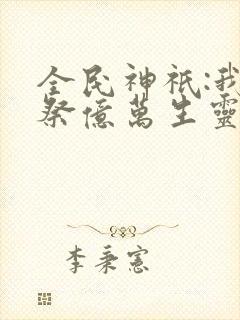 全民神祇:我
祭億萬生靈
李秉憲